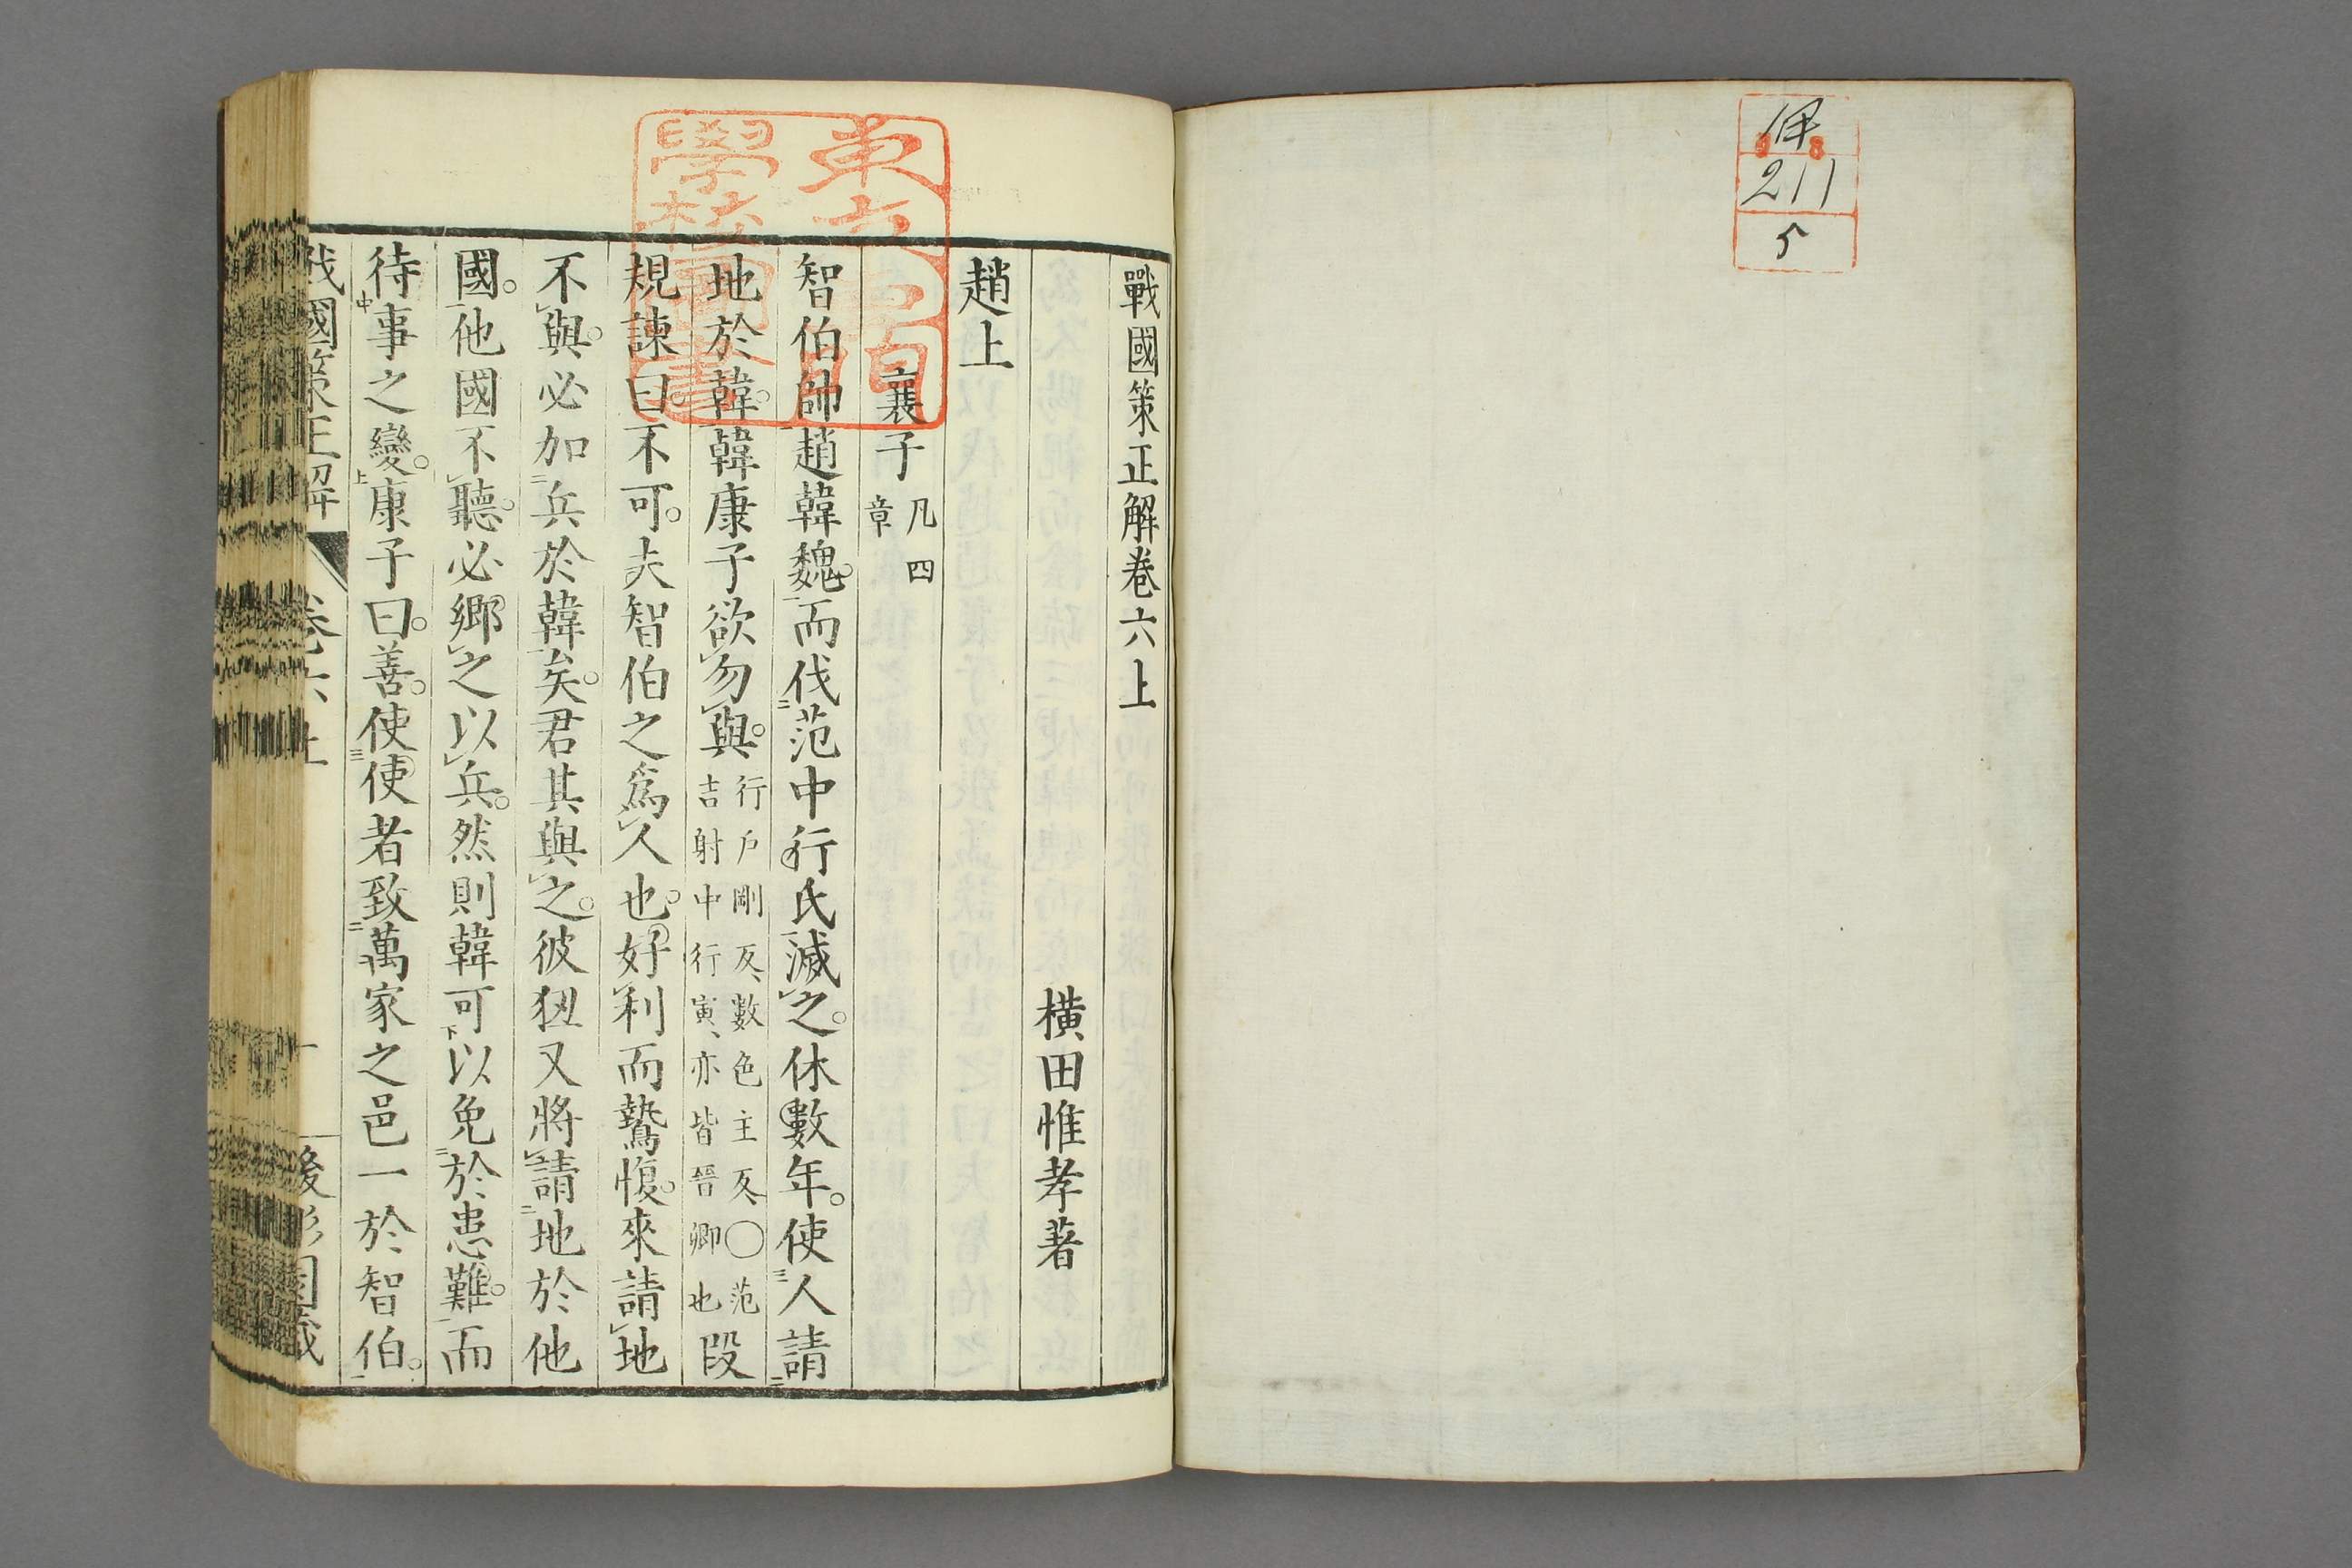 伊
211
5
戰國策正解卷六上
橫田惟孝著
趙上
襄子 凡四章
智伯帥趙韓魏。而伐范中行氏滅之。休數年。使人請
地於韓。韓康子欲勿與。行戶剛反、數色主反、○范吉射中行寅、亦皆晉卿也段
規諫曰。不可。夫智伯之爲人也。好利而鷙愎。來請地
不與。必加兵於韓矣。君其與之。彼狃又將請地於他
國。他國不聽。必鄉之以兵。然則韓可以免於患難。而
待事之變。康子曰。善。使使者致萬家之邑一於智伯。
戰國策正解 卷六上 一